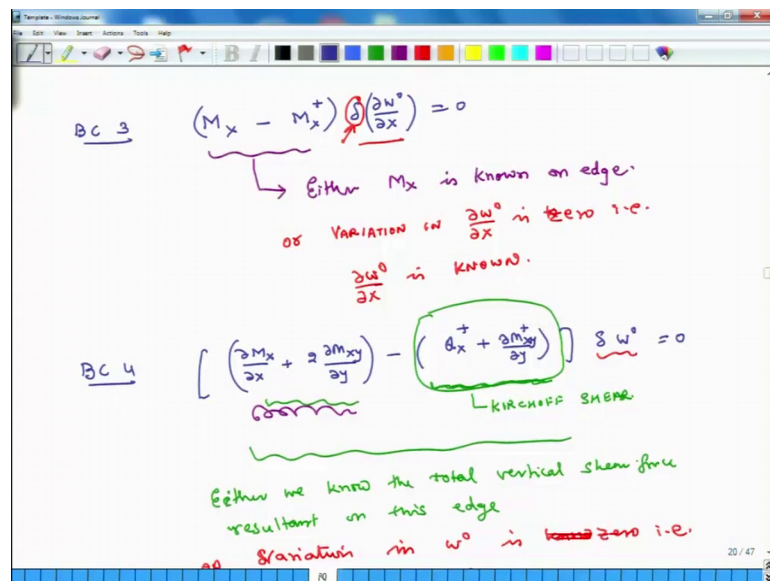 Template - Windows Journal
File Edit View Insert Actions Tools Help
B I
BC 3 (Mx - Mx⁺) δ(∂w°/∂x) = 0
Either Mx is known on edge.
or VARIATION IN ∂w°/∂x is zero i.e.
∂w°/∂x is KNOWN.
BC 4 [(∂Mx/∂x + 2 ∂Mxy/∂y) - (Qx⁺ + ∂Mxy⁺/∂y)] δ w° = 0
KIRCHOFF SHEAR
Either we know the total vertical shear force
resultant on this edge
or Variation in w° is zero i.e.
20 / 47